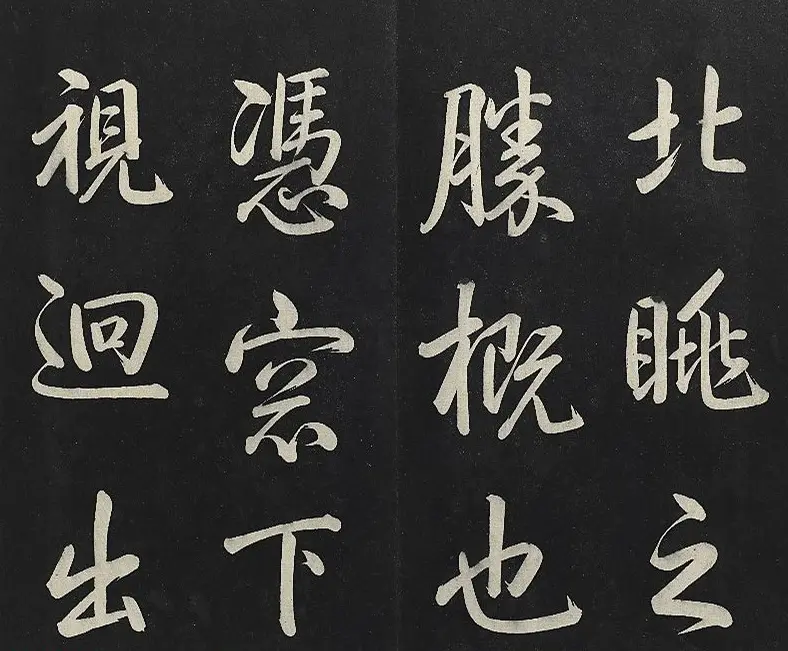 北眺之
勝概也
憑窓下
視迥出